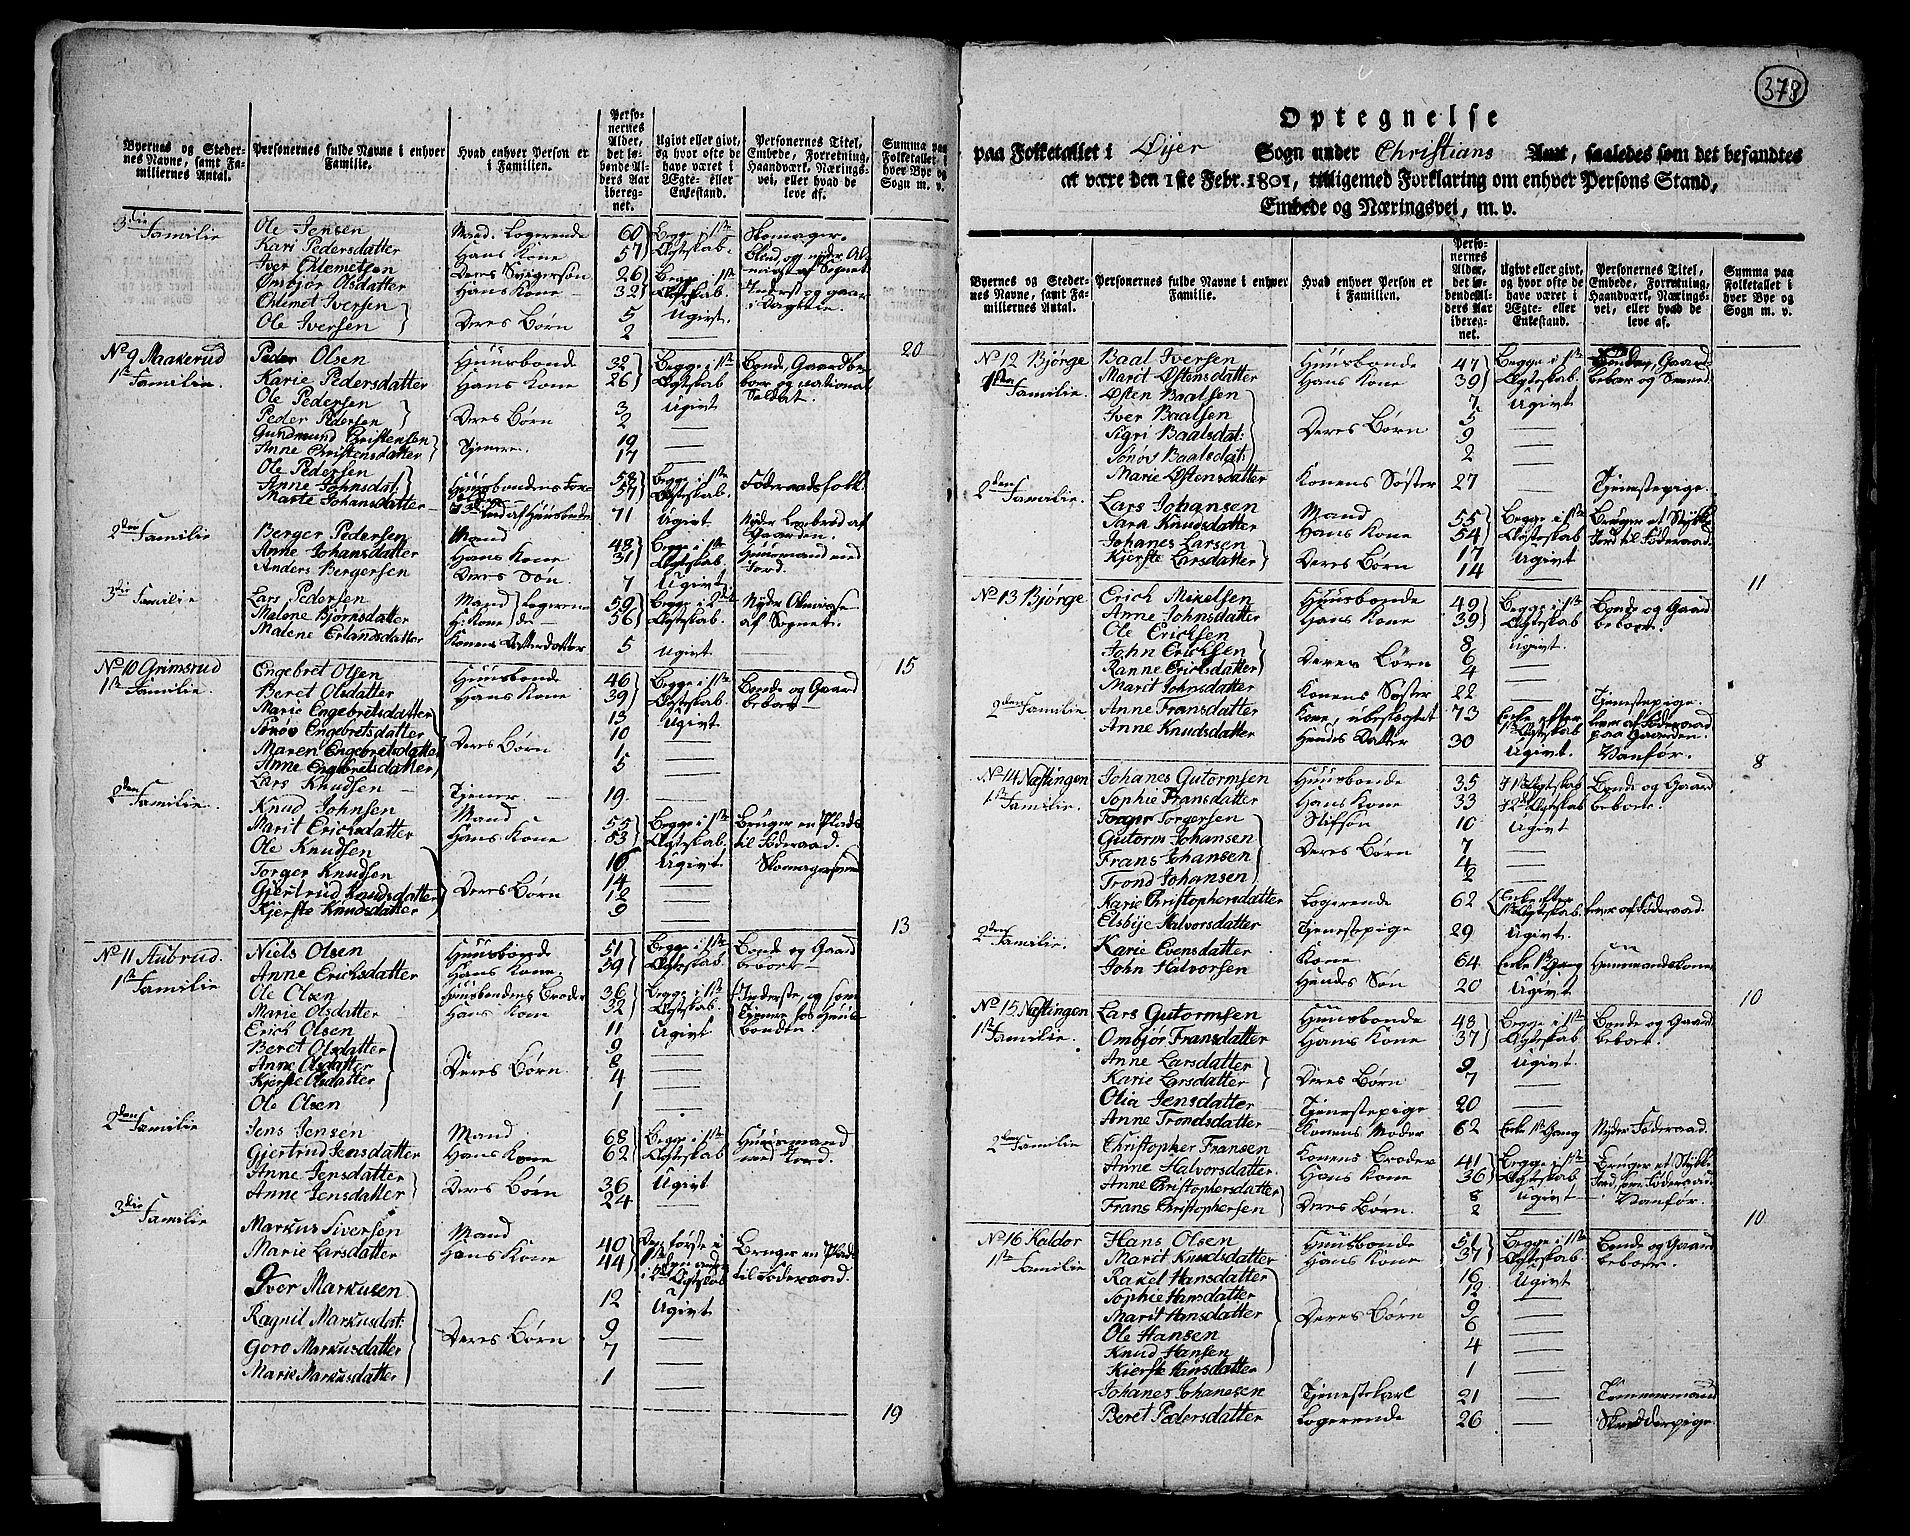 378
Byernes og Steder-
nes Navne, samt Fa-
miliernes Antal.
Personernes fulde Navne i enhver
Familie.
Hvad enhver Person er
i Familien.
Perso-
nernes
Alder,
det lø-
bende Al-
ders Aar
ibereg-
net.
Ugivt eller givt,
og hvor ofte de
have været i
Ægte- eller
Enkestand.
Personernes Titel,
Embede, Forretning,
Haandværk, Nærings-
vei, eller hvad de
leve af.
Summa paa
Folketallet i
hver Bye og
Sogn m. v.
3die Familie Ole Jensen Mand. Logerende 60 Begge i 1ste Skomager.
Kari Pedersdatter Hans Kone 57 Ægteskab.
Iver Clemetsen Deres Svigersøn 26 Begge i 1ste
Ombjør Olsdatter Hans Kone 32 Ægteskab.
Clemet Iversen Deres Børn 5 Ugivt
Ole Iversen 2
20
No 9 Maakerud Peder Olsen Huusbonde 32 Begge i 1ste Bonde, Gaardbe-
1ste Familie. Karie Pedersdatter Hans Kone 26 Ægteskab boer og national
Ole Pedersen 3 Ugivt Soldat.
Peder Pedersen Deres Børn 2 —
Gundmund Christensen 19 —
Anne Christensdatter Tjenere. 17 —
Ole Pedersen Huusbondens For- 58 Begge i 1ste Føderaadsfolk.
Anne Johnsdat: 57 Ægteskab.
Marte Johansdatter 71 Ugivt
2den Familie Berger Pedersen Mand 48 Begge i 1ste Huusmand med
Anne Johansdatter Hans Kone 31 Ægteskab. Jord.
Anders Bergersen Deres Søn. 7 Ugivt.
3die Familie Lars Pedersen Mand Logerende 59 Begge i 2det Nyder Almisse
Malene Bjørnsdatter H: Kone do 56 Ægteskab. af Sognet.
Malene Erlandsdatter Konens Datterdatter 5 Ugivt
15
No 10 Grimsrud Engebret Olsen Huusbonde 46 Begge i 1ste Bonde og Gaard
1ste Familie. Beret Olsdatter Hans Kone 39 Ægteskab beboer
Marie Engebretsdatter 13 Ugivt
Sønøv Engebretsdatter Deres Børn 10 —
Maren Engebretsdatter —
Anne Engebretsdatter 5 —
2den Familie. Lars Knudsen Tjener 19. —
Knud Johnsen Mand 55 Begge i 1ste Bruger en Plads
Marit Ericksdatter Hans Kone 53 Ægteskab. til Føderaad.
Ole Knudsen Ugivt
Torger Knudsen 14 —
Gjertrud Knudsdatter Deres Børn 12 —
Kjerste Knudsdatter 9 —
13
No 11 Aubrud. Niels Olsen Huusbonde 51 Begge i 1ste Bonde og Gaard
1ste Familie Anne Ericksdatter Hans Kone. 59 Ægteskab. beboer
Ole Olsen Huusbondens Broder 36 Begge i 1ste Inderste, og som
Marie Olsdatter Hans Kone 32 Ægteskab. Tjener hos Huus-
Erick Olsen 11 Ugivt bonden
Beret Olsdatter 9 —
Anne Olsdatter Deres Børn 8 —
Kjerste Olsdatter 4 —
Ole Olsen 1 —
2den Familie Jens Jensen Mand 68 Begge i 1ste Huusmand
Gjertrud Jensdatter Hans Kone 62 Ægteskab med Jord.
Anne Jensdatter Deres Børn 36 Ugivt
Anne Jensdatter 24 —
3die Familie Markus Siversen Mand 40 Bruger en Plads
Marie Larsdatter Hans Kone 44 til Føderaad.
Iver Markusen 12 Ugivt
Ragnil Markusdat: Deres Børn 9 —
Goro Markusdatter 7 —
Marie Markusdatter 1 —
19
Optegnelse
paa Folketallet i Øyer Sogn under Christians Amt, saaledes som det befandtes
at være den 1ste Febr. 1801, tilligemed Forklaring om enhver Persons Stand,
Embede og Næringsvei, m. v.
Byernes og Steder-
nes Navne, samt Fa-
miliernes Antal.
Personernes fulde Navne i enhver
Familie.
Hvad enhver Person er
i Familien.
Perso-
nernes
Alder,
det lø-
bende Al-
ders Aar
ibereg-
net.
Ugivt eller givt,
og hvor ofte de
have været i
Ægte- eller
Enkestand.
Personernes Titel,
Embede, Forretning,
Haandværk, Nærings-
vei, eller hvad de
leve af.
Summa paa
Folketallet i
hver Bye og
Sogn m. v.
No 12 Bjørge Baal Iversen Huusbonde 47 Begge i 1ste Bonde, Gaard
1ste Familie. Marit Østensdatter Hans Kone 39 Ægteskab. beboer og Smed
Østen Baalsen 7 Ugivt
Iver Baalsen Deres Børn 5 —
Sigri Baalsdat: 9 —
Sønøv Baalsdat: 2 —
Marie Østensdatter Konens Søster 27 — Tjenestepige.
2den Familie. Lars Johansen Mand 55 Begge i 1ste Bruger et Stykke
Sara Knudsdatter Hans Kone 54 Ægteskab Jord til Føderaad.
Johanes Larsen Deres Børn 17 Ugivt
Kjerste Larsdatter 14 —
11
No 13 Bjørge Erich Mikelsen Huusbonde 49 Begge i 1ste Bonde og Gaard
Anne Johnsdatter Hans Kone 39 Ægteskab beboer.
Ole Ericksen 8 Ugivt.
John Ericksen Deres Børn 6 —
Ranne Ericksdatter 4 —
Marit Johnsdatter Konens Søster 22 — Tjenestepige.
2den Familie Anne Fransdatter Kone, ubeslægtet 73 Enke efter lever af Føderaad
1ste Ægteskab paa Gaarden.
Anne Knudsdatter Hendes Datter 30 Ugivt. Vanfør.
8
No 14 Nastingen Johanes Gutormsen Huusbonde 35 I 1ste Ægteskab Bonde og Gaard
1ste Familie. Sophie Fransdatter Hans Kone 33 I 2det Ægteskab beboer.
Torger Torgersen Stifsøn 10 Ugivt
Gutorm Johansen Deres Børn 7 —
Frans Johansen 4 —
Trond Johansen 2 —
Karie Christophersdatter Logerende 62 Enke efter lever af Føderaad
1ste Ægteskab.
Elsbye Halvorsdatter Tjenestepige 29 Ugivt.
2den Familie. Karie Evensdatter Kone. 64 Enke 1ste Gang Huusmandskone
John Halvorsen Hendes Søn 20 Ugivt
10
No 15 Nastingen Lars Gutormsen Huusbonde 48 Begge i 1ste Bonde og Gaard
1ste Familie. Ombjør Fransdatter Hans Kone 37 Ægteskab beboer.
Anne Larsdatter Deres Børn 9 Ugivt
Karie Larsdatter 7 —
Olia Jensdatter Tjenestepige 20 —
Anne Trondsdatter Konens Moder 62 Enke 1ste Gang Nyder Føderaad.
2den Familie Christopher Fransen Konens Broder 41 Begge i 1ste Bruger et Stykke
Anne Halvorsdatter Hans Kone 36 Ægteskab. Jord, som Føderaad.
Anne Christophersdatter Deres Børn. 8 Ugivt Vanfør.
Frans Christophersen 2 —
10
No 16 Kaldor Hans Olsen Huusbonde 51 Begge i 1ste Bonde og Gaard
1ste Familie Marit Knudsdatter Hans Kone 37 Ægteskab. beboer.
Rakel Hansdatter 16 Ugivt
Sophie Hansdatter 12 —
Marit Hansdatter Deres Børn 9 —
Ole Hansen 6 —
Knud Hansen 4 —
Kjerste Hansdatter 1 —
Johanes Johanesen Tjenestekarl 21 — Tømmermand
Beret Pedersdatter Logerende 26 — Skrædderpige.